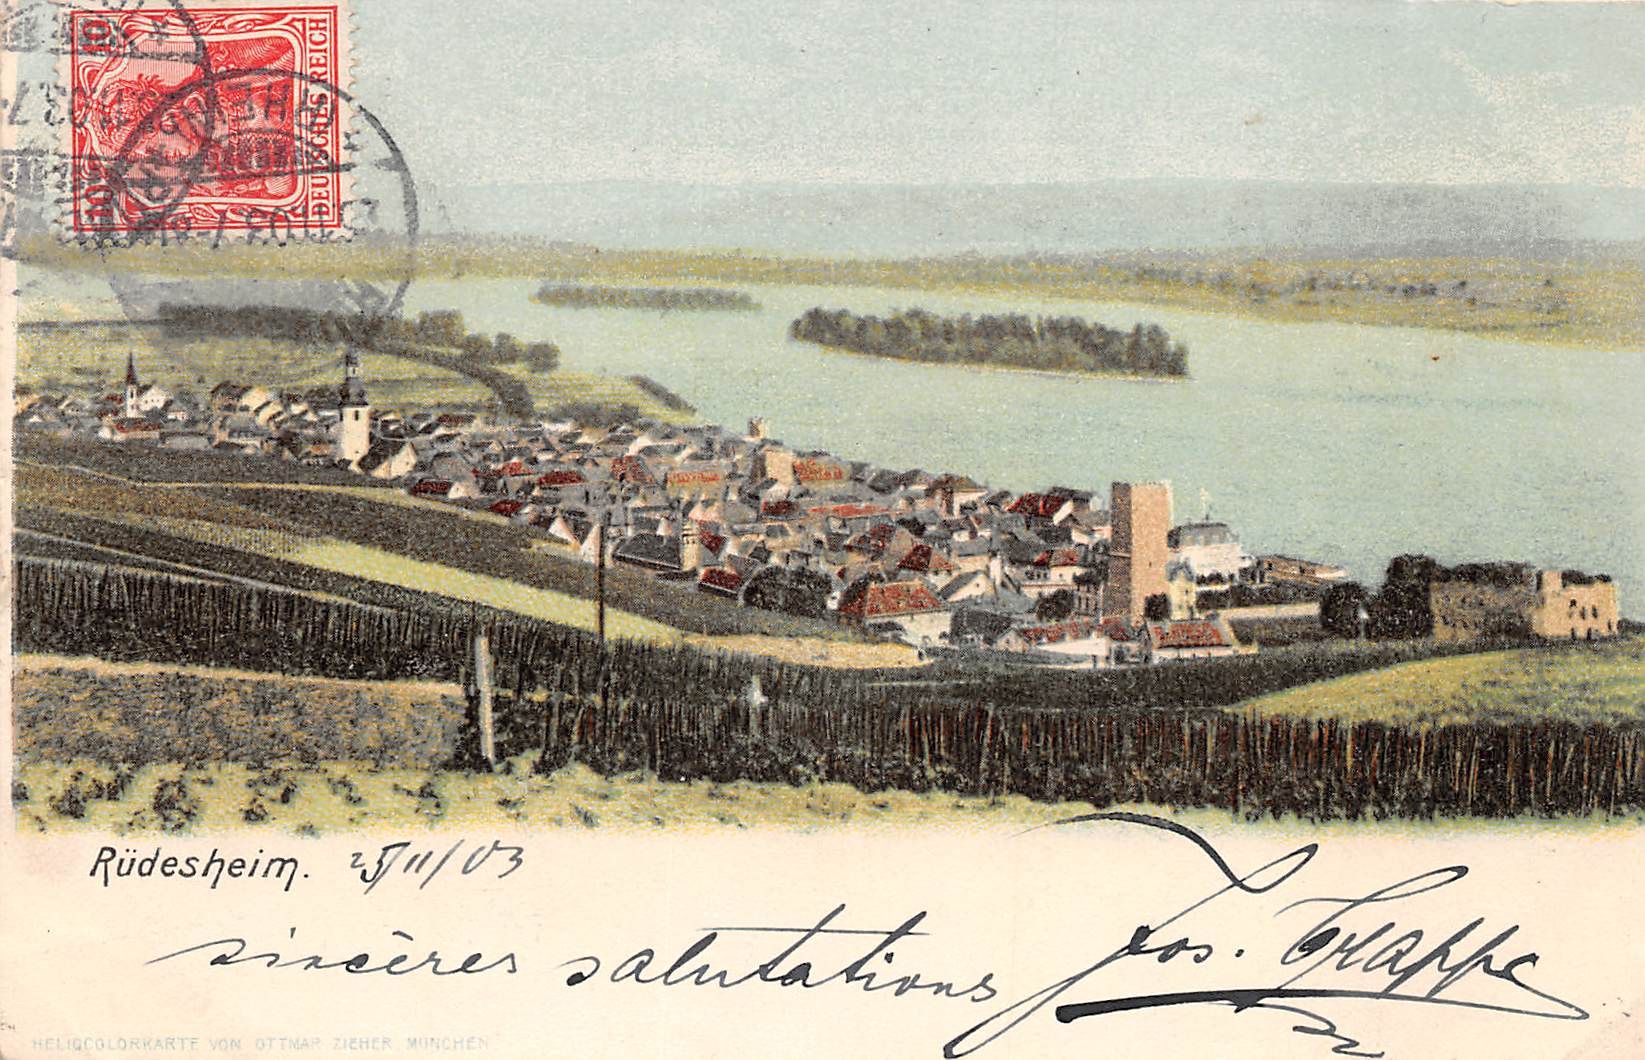 10
10
DEUTSCHES REICH
Rüdesheim. 25/11/03
sincères salutations
Jos. Grappe
HELIOCOLORKARTE VON OTTMAR ZIEHER, MÜNCHEN